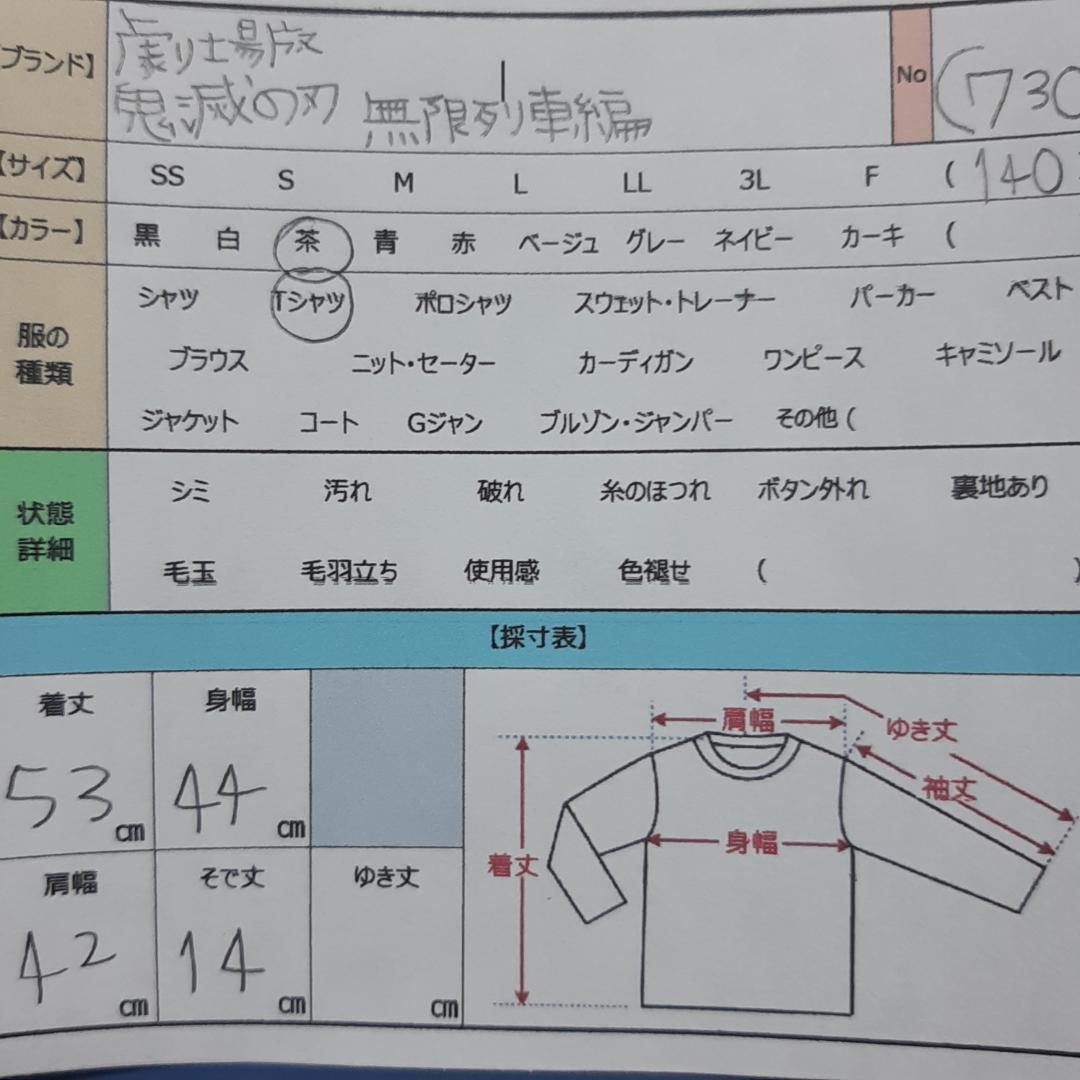 ブランド】 劇場版
鬼滅の刃 無限列車編
No (730
【サイズ】 SS S M L LL 3L F (140)
【カラー】 黒 白 茶 青 赤 ベージュ グレー ネイビー カーキ (
服の種類
シャツ Tシャツ ポロシャツ スウェット・トレーナー パーカー ベスト
ブラウス ニット・セーター カーディガン ワンピース キャミソール
ジャケット コート Gジャン ブルゾン・ジャンパー その他 (
状態詳細
シミ 汚れ 破れ 糸のほつれ ボタン外れ 裏地あり
毛玉 毛羽立ち 使用感 色褪せ ( )
【採寸表】
着丈 身幅
53cm 44cm
肩幅 そで丈 ゆき丈
42cm 14cm cm
肩幅
ゆき丈
袖丈
身幅
着丈